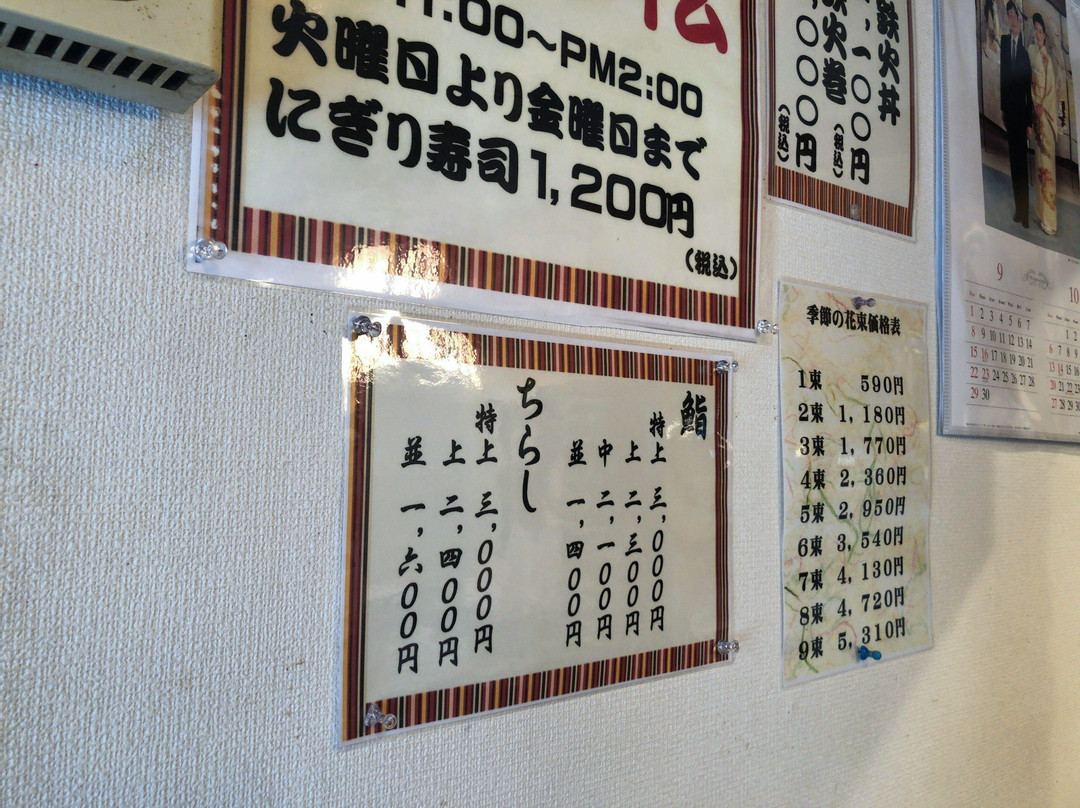 11:00〜PM2:00
火曜日より金曜日まで
にぎり寿司1,200円
(税込)
鉄火丼
一,一〇〇円
(税込)
鉄火巻
〇〇〇円
(税込)
鮨
特上 三,〇〇〇円
上 二,三〇〇円
中 二,一〇〇円
並 一,四〇〇円
ちらし
特上 三,〇〇〇円
上 二,四〇〇円
並 一,六〇〇円
季節の花束価格表
1束 590円
2束 1,180円
3束 1,770円
4束 2,360円
5束 2,950円
6束 3,540円
7束 4,130円
8束 4,720円
9束 5,310円
9
1 2 3 4 5 6 7
8 9 10 11 12 13 14
15 16 17 18 19 20 21
22 23 24 25 26 27 28
29 30
10
1 2
6 7 8 9
13 14 15 16
20 21 22 23
27 28 29 30